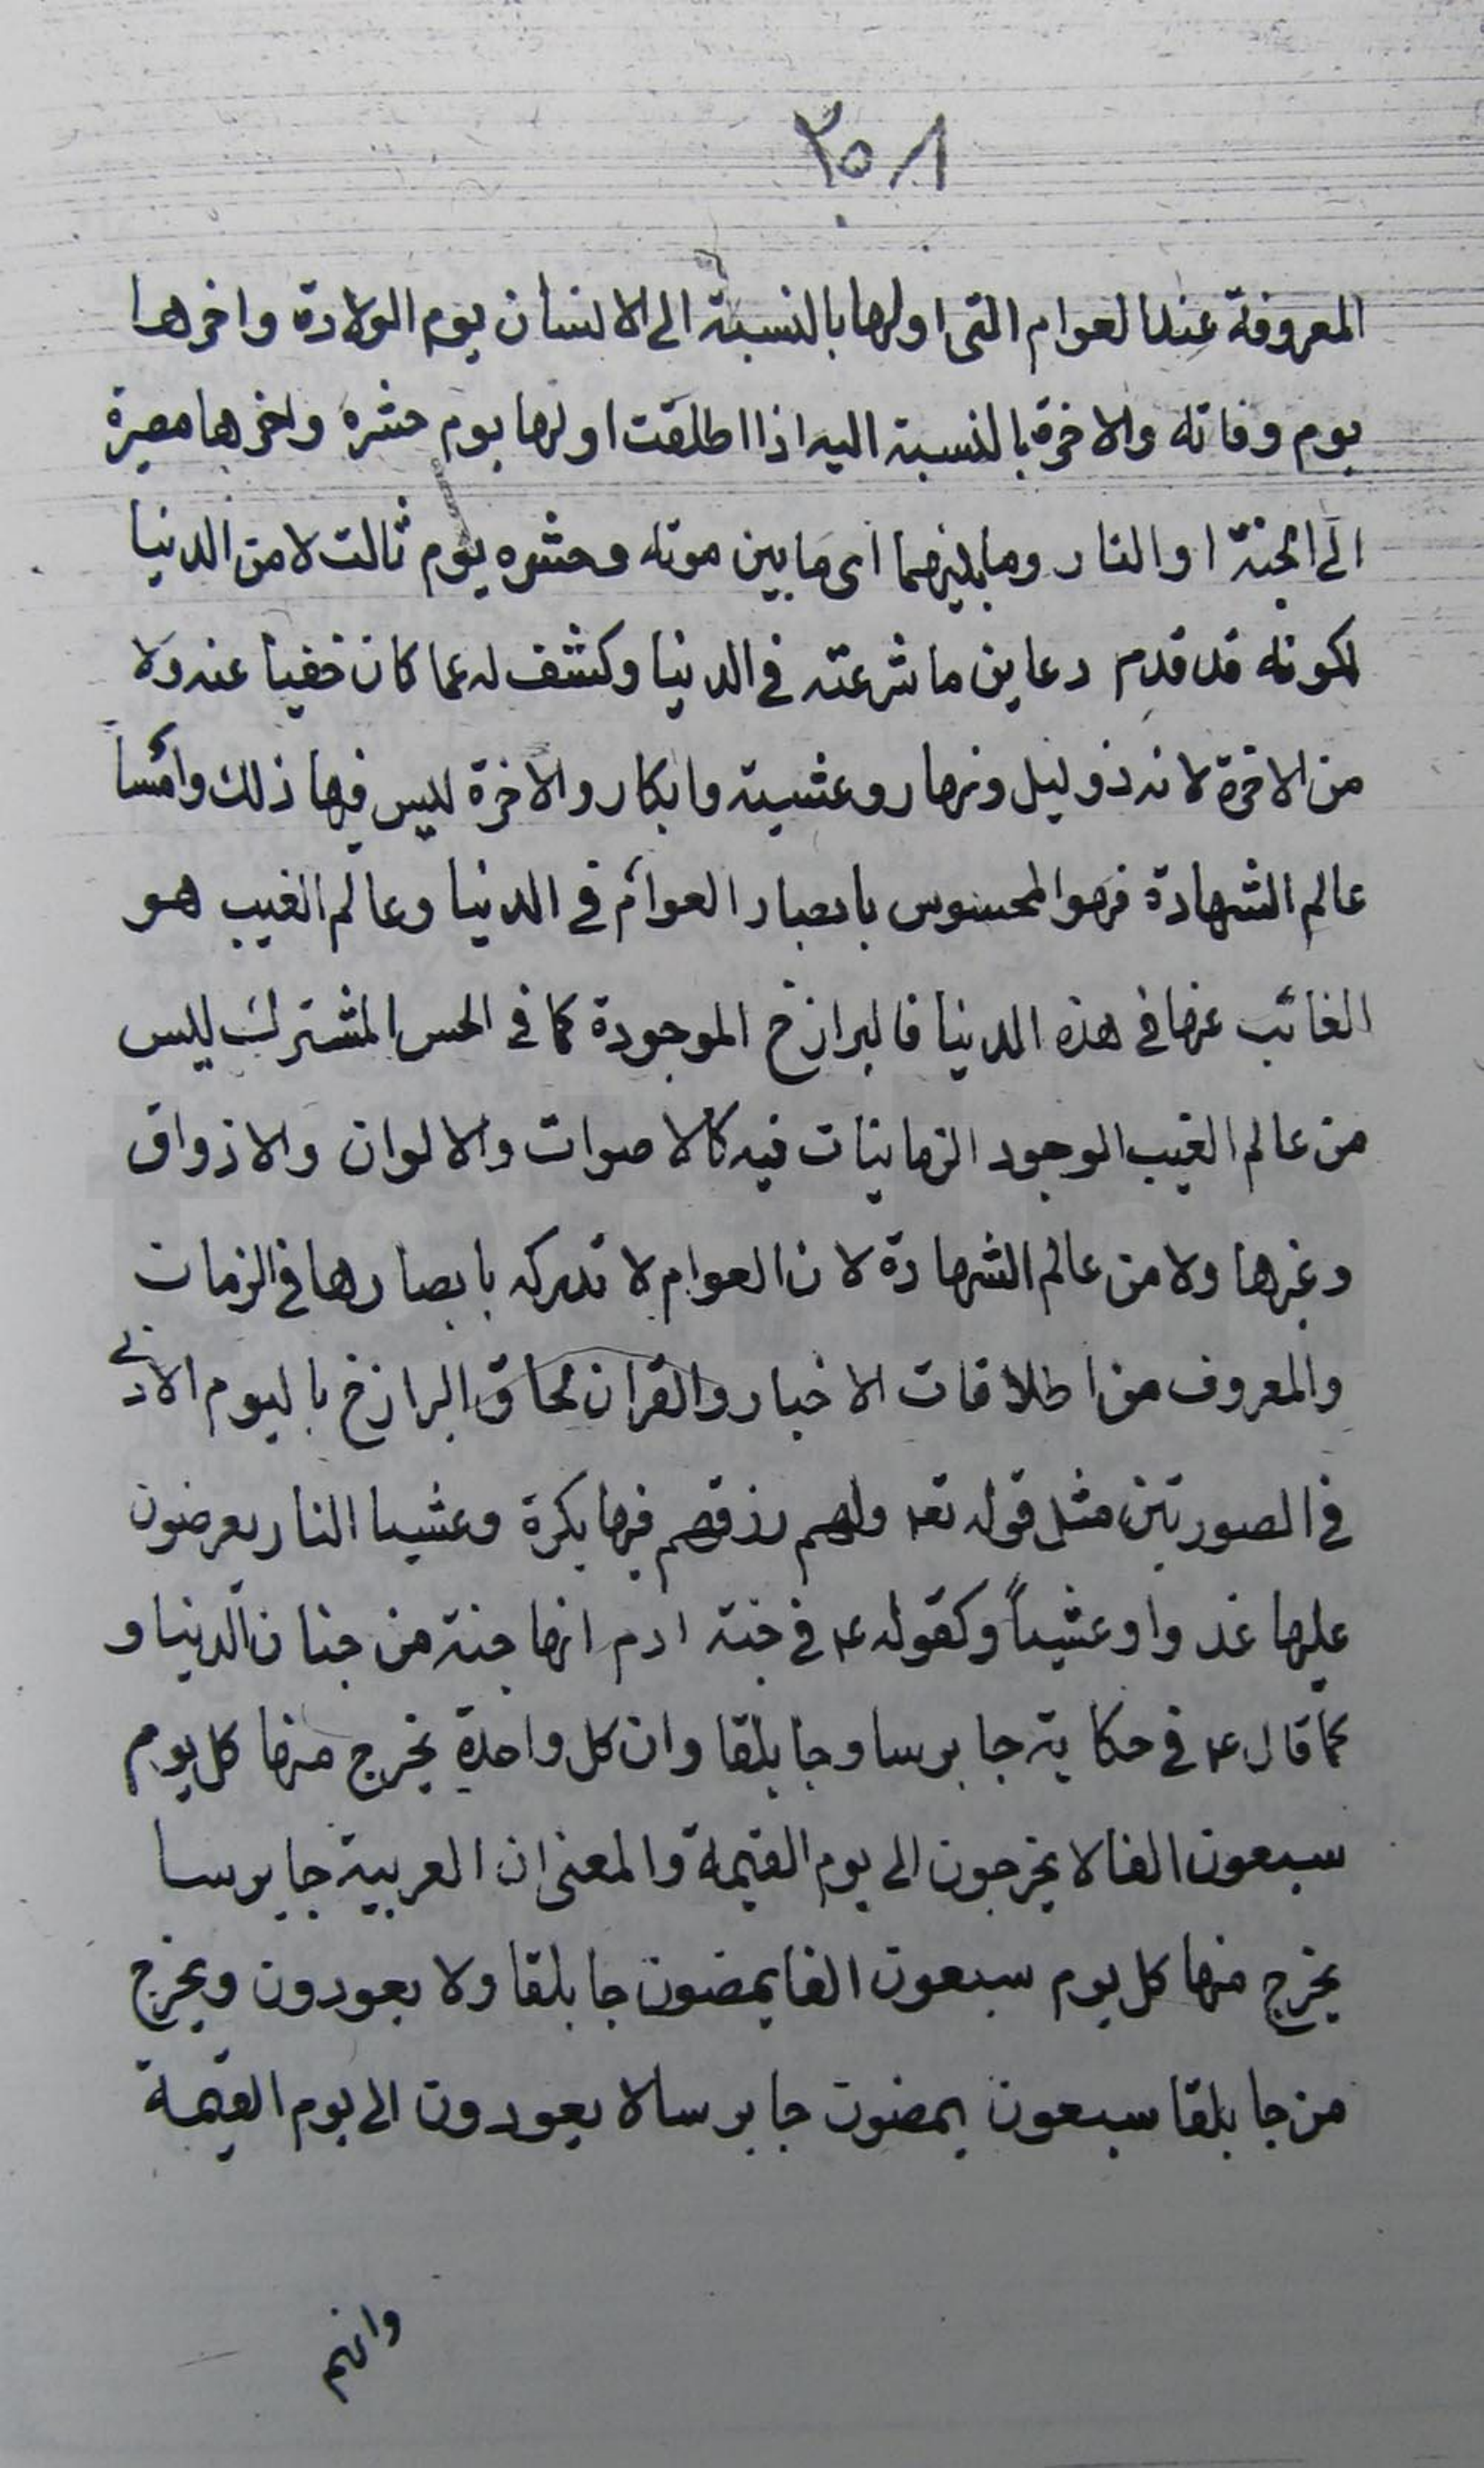 ٣٥٨
المعروفة عند العوام التى اولها بالنسبة الى الانسان يوم الولادة واخرها
يوم وفاته والاخرة بالنسبة اليه اذا اطلقت اولها يوم حشره واخرها مصيرة
الى الجنة او النار وما بينهما اى ما بين موته وحشره يوم ثالث لا من الدنيا
لكونه قد قدم وعاين ما شرعته فى الدنيا وكشف له عما كان خفيا عنه ولا
من الاخرة لانه ذو ليل ونهار وعشية وابكار والاخرة ليس فيها ذلك وامّا
عالم الشهادة فهو المحسوس بابصار العوام فى الدنيا وعالم الغيب هو
الغائب عنها فى هذه الدنيا فالبرازخ الموجودة كما فى الحس المشترك ليس
من عالم الغيب الوجود الزمانيات فيه كالاصوات والالوان والاذواق
وغيرها ولا من عالم الشهادة لان العوام لا تدركه بابصارها فى الزمان
والمعروف من اطلاقات الاخبار والقران لحاق البرازخ باليوم الادنى
فى الصورتين مثل قوله تعا ولهم رزقهم فيها بكرة وعشيا النار يعرضون
عليها غدوا وعشياً وكقوله ع فى جنة ادم انها جنة من جنان الدنيا و
كما قال ع فى حكاية جابرسا وجابلقا وان كل واحدة يخرج منها كل يوم
سبعون الفا لا يخرجون الى يوم القيمة والمعنى ان العربية جابرسا
يخرج منها كل يوم سبعون الفا يمضون جابلقا ولا يعودون ويخرج
من جابلقا سبعون يمضون جابرسا لا يعودون الى يوم القيمة
وانهم